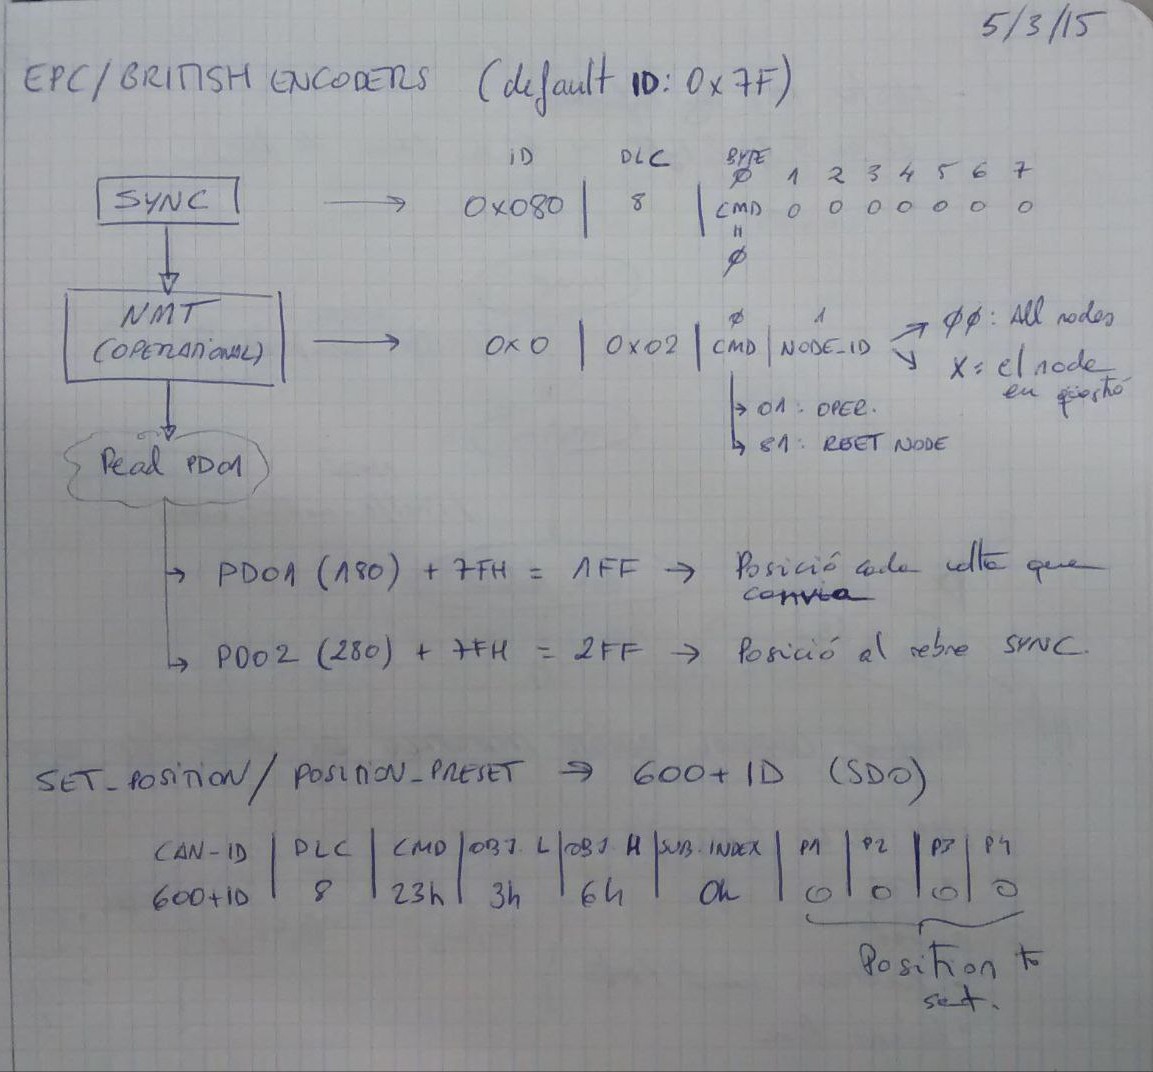 5/3/15
EPC/BRITISH ENCODERS (default ID: 0x7F)
ID DLC BYTE
Ø 1 2 3 4 5 6 7
SYNC → 0x080 | 8 | CMD 0 0 0 0 0 0 0
"
Ø
NMT
(OPERATIONAL) → 0x0 | 0x02 | CMD | NODE_ID
Ø 1
ØØ: All nodes
X = el node
en qüestió
01: OPER.
81: RESET NODE
Read PDO1
PDO1 (180) + 7FH = 1FF → Posició cada volta que
canvia
PDO2 (280) + 7FH = 2FF → Posició al rebre SYNC.
SET_POSITION/POSITION_PRESET → 600+ID (SDO)
CAN-ID | DLC | CMD | OBJ. L | OBJ. H | SUB. INDEX | P1 | P2 | P3 | P4
600+ID | 8 | 23h | 3h | 6h | 0h | 0 | 0 | 0 | 0
Position to
set.